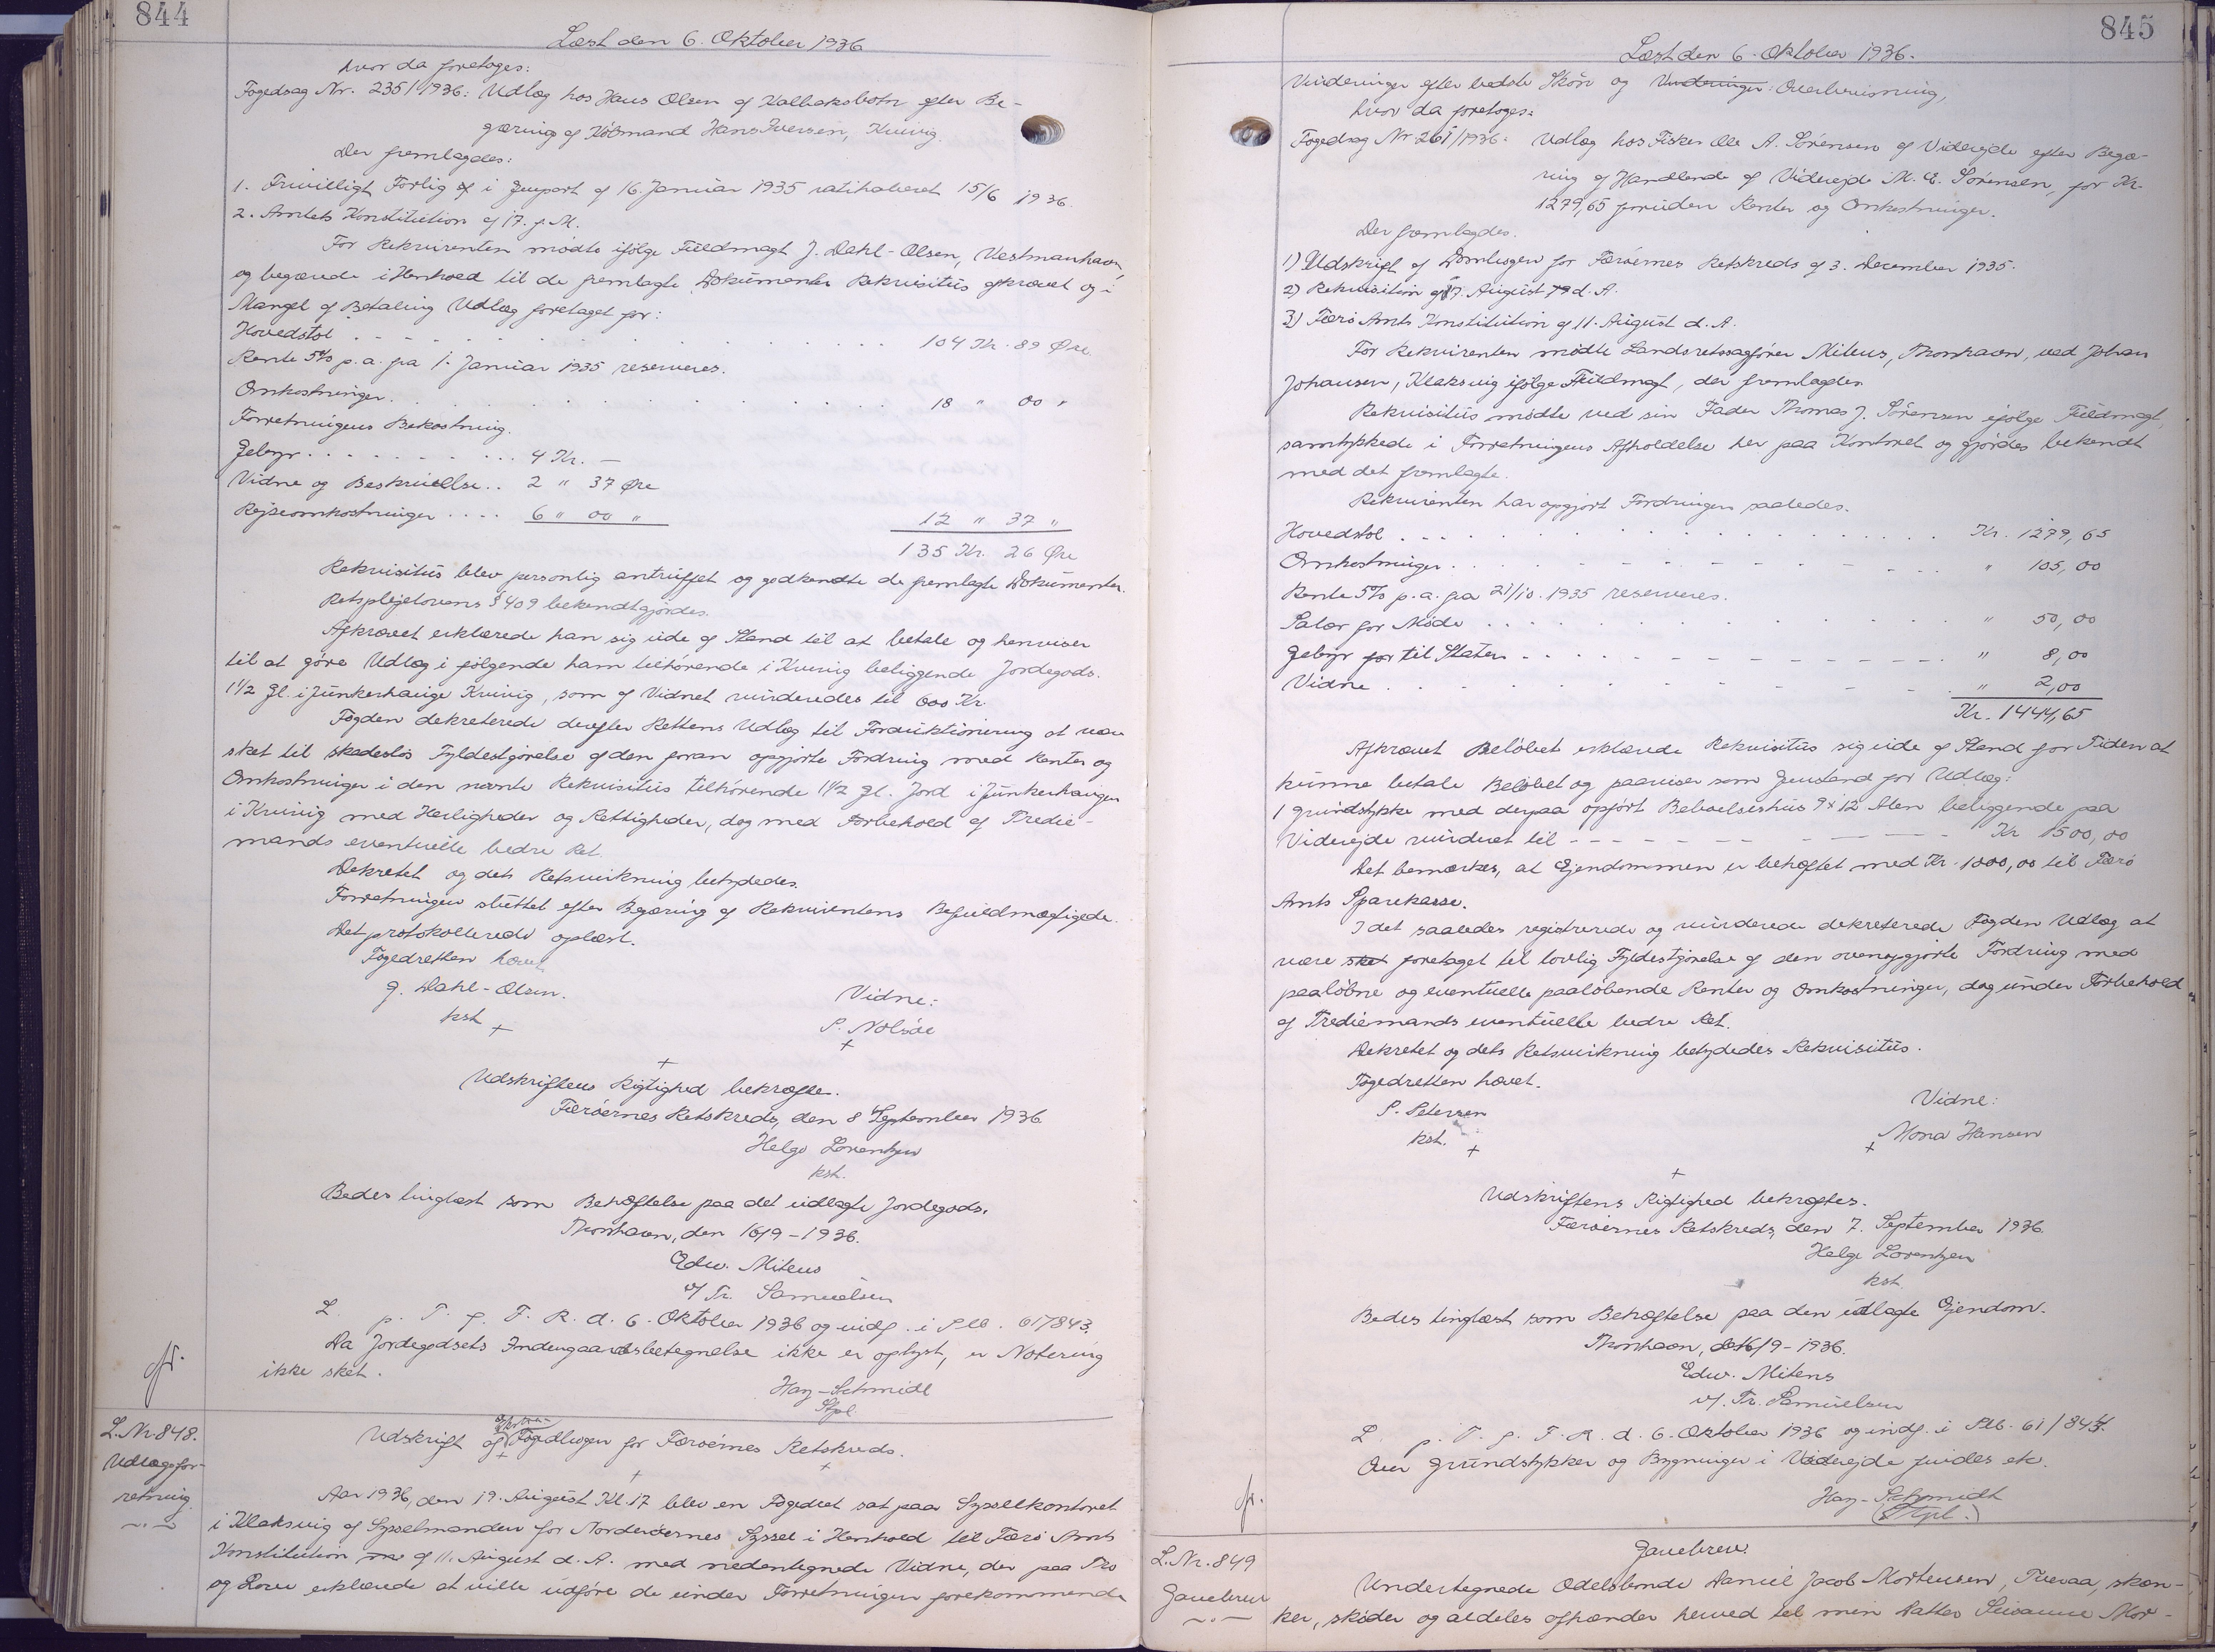 844
Læst den 6. Oktober 1936
hvor da foretoges:
Fogedsag Nr. 235/1936: Udlæg hos Hans Olsen af Kalbaksbotn efter Be-
gæring af Købmand Hans Iversen, Kvivig.
Der fremlagdes:
1. Frivilligt Forlig af i Genpart af 16. Januar 1935 ratihaberet 15/6 1936.
2. Amtets Konstitution af 17. f. M.
For Rekvirenten mødte ifølge Fuldmagt J. Dahl-Olsen, Vestmanhavn,
og begærede i Henhold til de fremlagte Dokumenter Rekvisitus afkrævet og i
Mangel af Betaling Udlæg foretaget for:
Hovedstol . . . . . . . . . . 104 Kr. 89 Øre
Rente 5% p.a. fra 1. Januar 1935 reserveres.
Omkostninger . . . . . . . . . . 18 " 00 "
Forretningens Bekostning.
Gebyr . . . . . . . . . 4 Kr. —
Vidne og Beskrivelse . . 2 " 37 Øre
Rejseomkostninger . . . . 6 " 00 " 12 " 37 "
135 Kr. 26 Øre
Rekvisitus blev personlig antruffet og godkendte de fremlagte Dokumenter.
Retsplejelovens § 409 bekendtgjordes.
Afkrævet erklærede han sig ude af Stand til at betale og henviser
til at gøre Udlæg i følgende ham tilhørende i Kvivig beliggende Jordegods.
1 1/2 Gl. i Junkerhauge Kvivig, som af Vidnet vurderedes til 600 Kr.
Fogden dekreterede derefter Rettens Udlæg til Forauktionering at være
sket til skadesløs Fyldestgørelse af den foran opgjorte Fordring med Renter og
Omkostninger i den nævnte Rekvisitus tilhørende 1 1/2 Gl. Jord i Junkerhaugen
i Kvivig med Herligheder og Rettigheder, dog med Forbehold af Tredie-
mands eventuelle bedre Ret.
Dekretet og dets Retsvirkning betydedes.
Forretningen sluttet efter Begæring af Rekvirentens Befuldmægtigede.
Det protokollerede oplæst.
Fogedretten hævet
J. Dahl-Olsen.
kst
+
Vidne:
P. Nolsøe
+
+
Udskriftens Rigtighed bekræftes.
Færøernes Retskreds, den 8 September 1936
Helge Lorentzen
kst.
Bedes tinglæst som Behæftelse paa det udlagte Jordegods.
Thorshavn, den 16/9 - 1936.
Edw. Mitens
v/ Tr. Samuelsen
L. p. T. f. F. R. d. 6. Oktober 1936 og indf. i S.Pb. 61/843.
Da Jordegodsets Indengaardsbetegnelse ikke er oplyst, er Notering
ikke sket.
Hay-Schmidt
Stpl.
L. Nr. 848.
Udlægsfor-
retning
Udskrift af Ekstra- Fogedbogen for Færøernes Retskreds.
+ + +
Aar 1936, den 19. August Kl. 17 blev en Fogedret sat paa Sysselkontoret
i Klaksvig af Sysselmanden for Norderøernes Syssel i Henhold til Færø Amts
Konstitution af 11. August d. A. med nedentegnede Vidne, der paa Tro
og Love erklærede at ville udføre de under Forretningen forekommende
845
Læst den 6. Oktober 1936.
Vurderinger efter bedste Skøn og Vurderinger: Overbevisning,
hvor da foretoges:
Fogedsag Nr. 261/1936: Udlæg hos Fisker Ole A. Sørensen af Viderejde efter Begæ-
ring af Handlende af Viderejde M. E. Sørensen, for Kr.
1279,65 foruden Renter og Omkostninger.
Der fremlagdes.
1) Udskrift af Dombogen for Færøernes Retskreds af 3. December 1935.
2) Rekvisition af 17. August d. A.
3) Færø Amts Konstitution af 11. August d. A.
For Rekvirenten mødte Landsretssagfører Mitens, Thorshavn, ved Johan
Johansen, Klaksvig ifølge Fuldmagt, der fremlagdes
Rekvisitus mødte ved sin Fader Thomas J. Sørensen ifølge Fuldmagt,
samtykkede i Forretningens Afholdelse her paa Kontoret og gjordes bekendt
med det fremlagte.
Rekvirenten har opgjort Fordringen saaledes.
Hovedstol . . . . . . . . . . Kr. 1279,65
Omkostninger . . . . . . . . . . " 105,00
Rente 5% p.a. fra 21/10. 1935 reserveres.
Salær for Møde . . . . . . . . . . " 50,00
Gebyr for til Staten . . . . . . . . . . " 8,00
Vidne . . . . . . . . . . " 2,00
Kr. 1444,65
Afkrævet Beløbet erklærede Rekvisitus sig ude af Stand for Tiden at
kunne betale Beløbet og paaviser som Genstand for Udlæg:
1 Grundstykke med derpaa opført Beboelseshus 9 x 12 Alen beliggende paa
Viderejde vurderet til - - - - - - - Kr 1500,00
Det bemærkes, at Ejendommen er behæftet med Kr. 1000,00 til Færø
Amts Sparekasse.
I det saaledes registrerede og vurderede dekreterede Fogden Udlæg at
være sket foretaget til lovlig Fyldestgørelse af den ovenopgjorte Fordring med
paaløbne og eventuelle paaløbende Renter og Omkostninger, dog under Forbehold
af Trediemands eventuelle bedre Ret.
Dekretet og dets Retsvirkning betydedes Rekvisitus.
Fogedretten hævet.
P. Petersen
kst. +
Vidne:
Mona Hansen
+
+
Udskriftens Rigtighed bekræftes.
Færøernes Retskreds, den 7. September 1936.
Helge Lorentzen
kst
Bedes tinglæst som Behæftelse paa den udlagte Ejendom.
Thorshavn, d. 16/9 - 1936.
Edw. Mitens
v/. Tr. Samuelsen
L. p. T. f. F. R. d. 6. Oktober 1936 og indf. i S.Pb. 61/844.
Over Grundstykker og Bygninger i Viderejde findes ek.
Hay-Schmidt
(Stpl.)
L. Nr. 849
Gavebrev
Gavebrev.
Undertegnede Odelsbonde Daniel Jacob Mortensen, Tveraa, skæn-
ker, skøder og aldeles afhænder herved til min Datter Susanne Mor-